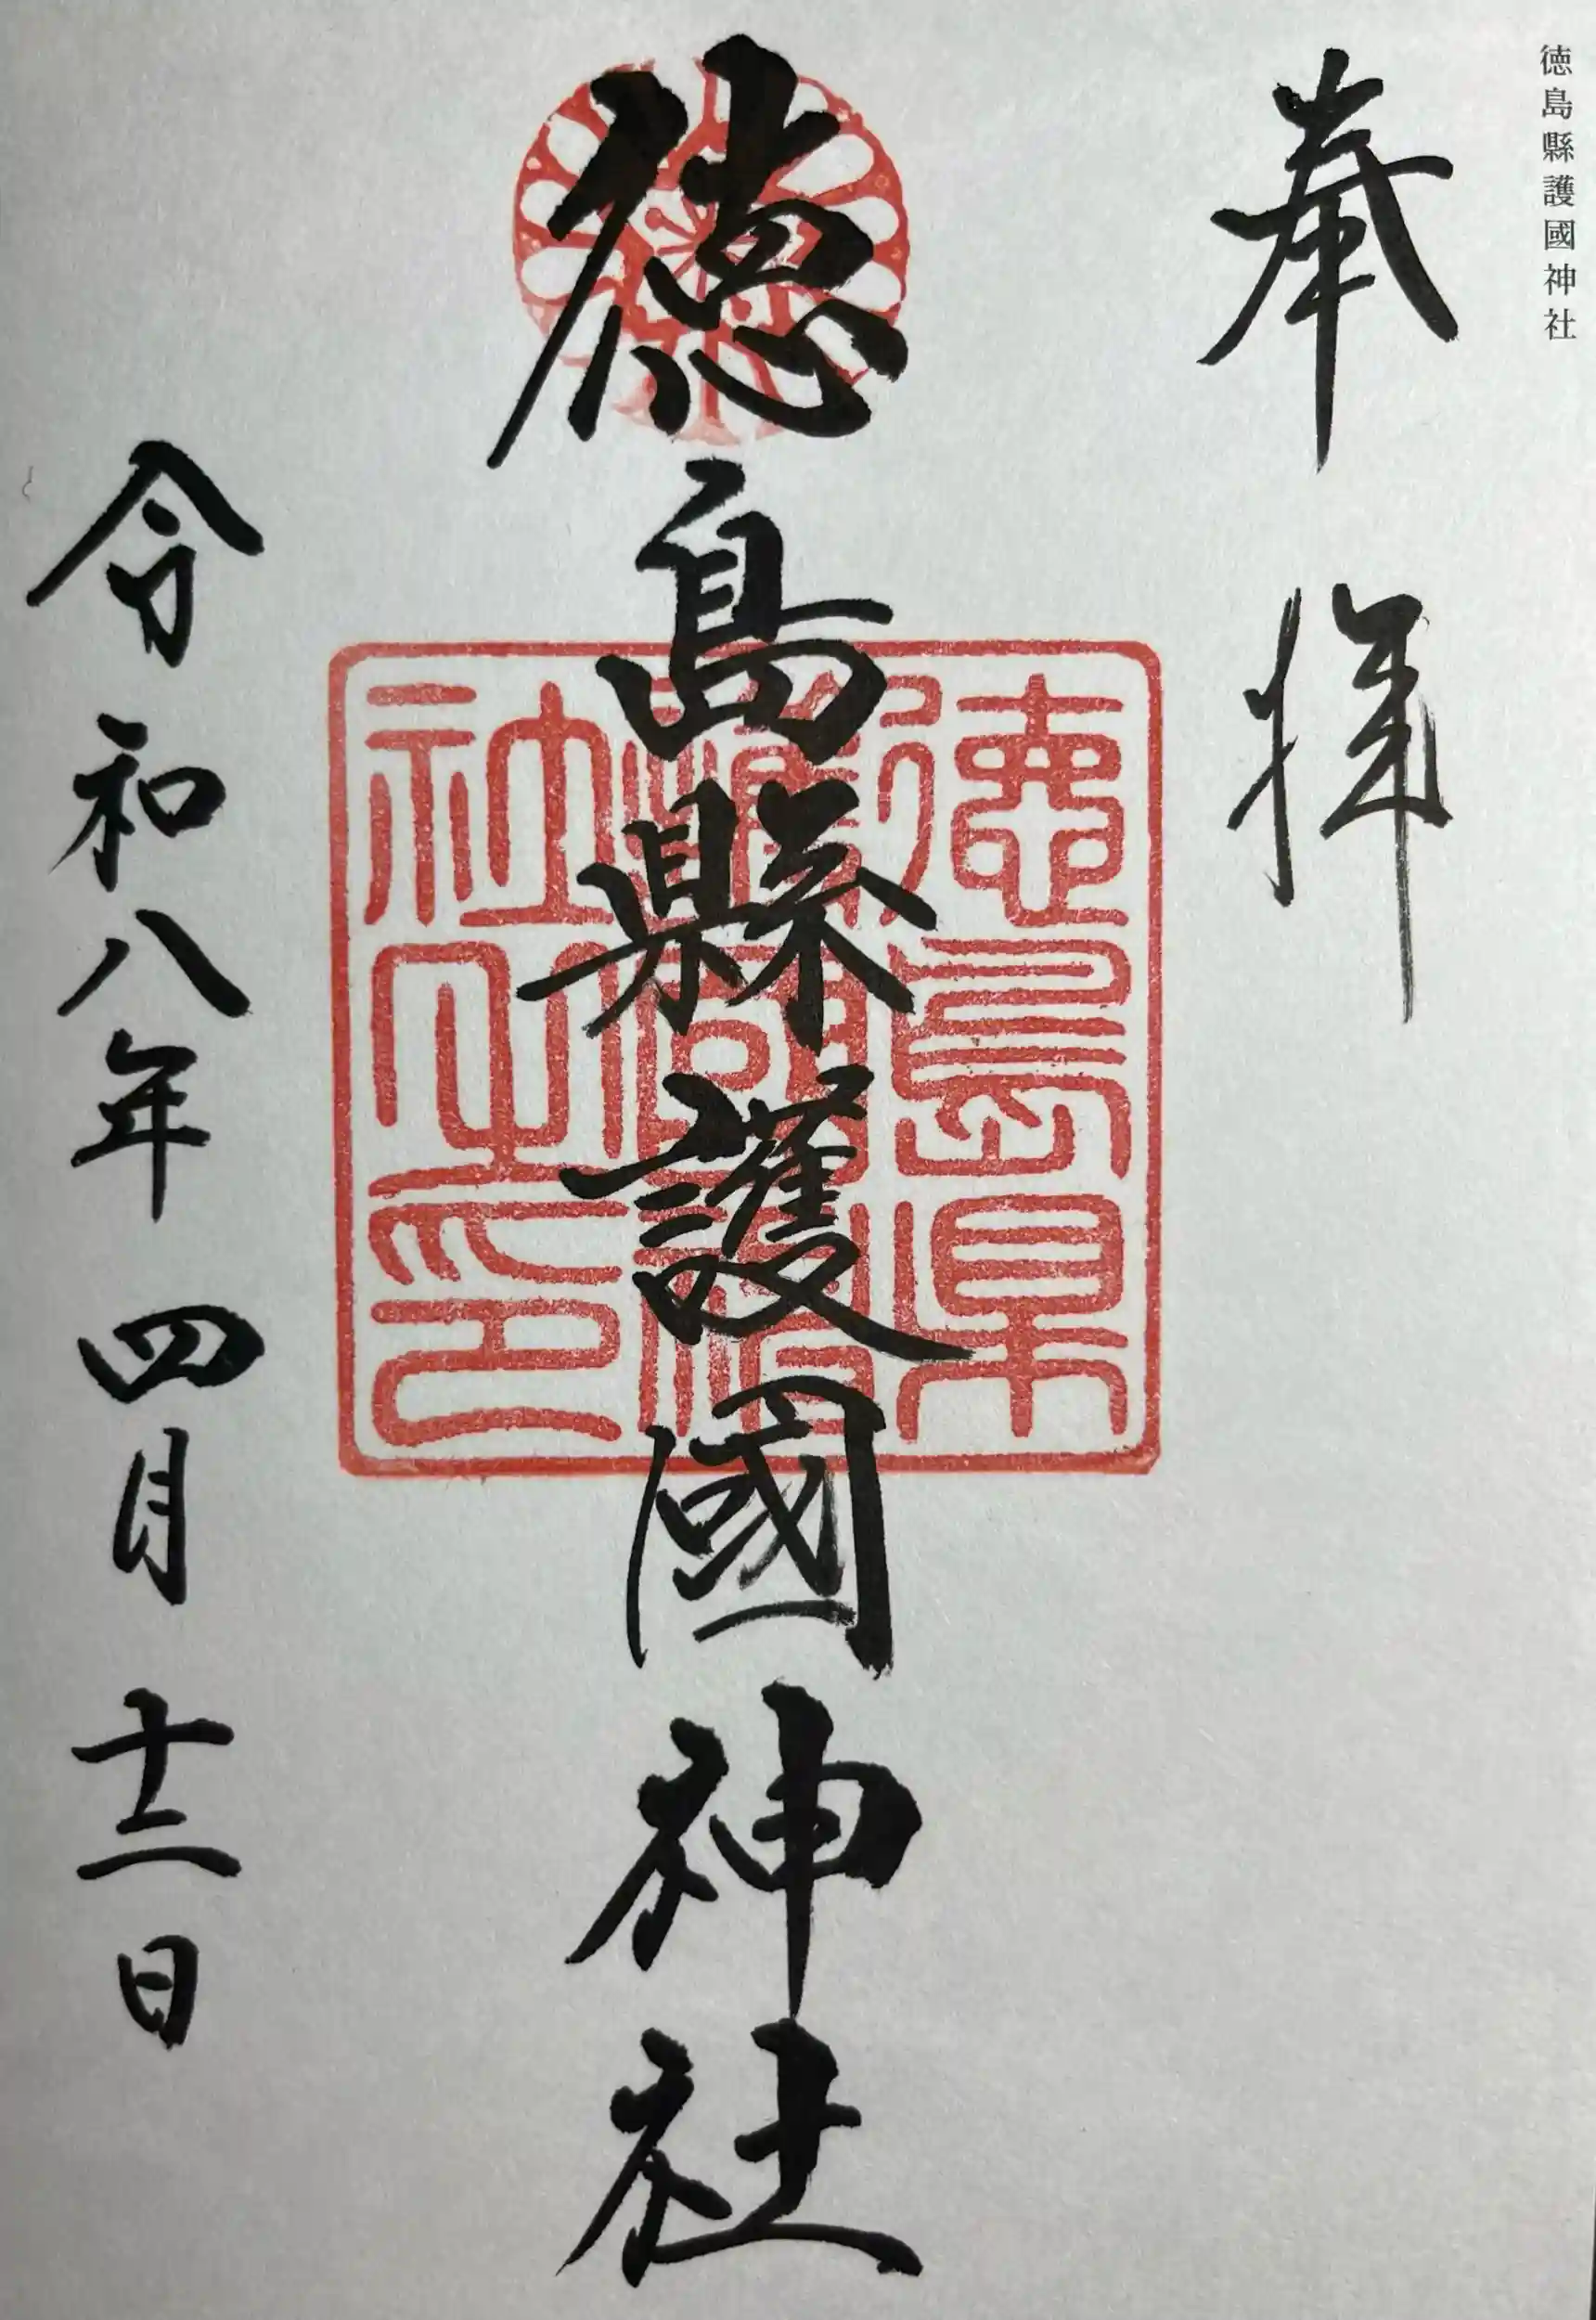 徳島縣護國神社
奉拝
徳島縣護國神社
徳島県護國神社之印
令和八年四月十二日